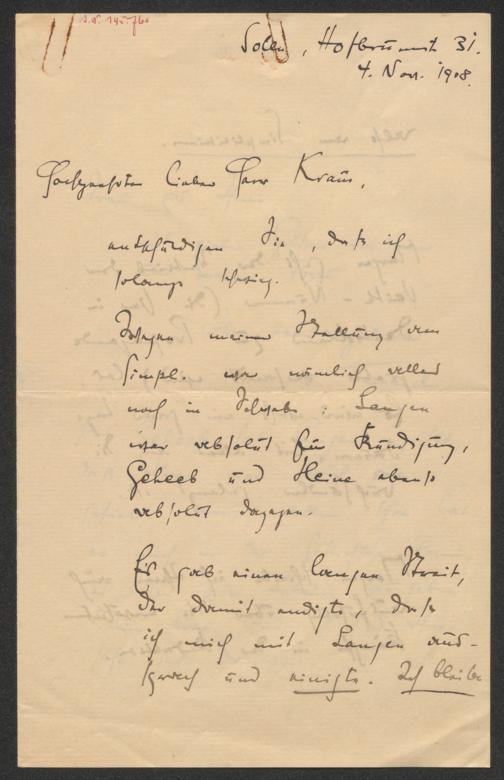 I.N. 145.760
Solln, Hofbrunnstr 31.
4. Nov. 1908.
Hochgeehrter lieber Herr Kraus,
entschuldigen Sie, daß ich
solange schwieg.
Wegen meiner Stellung am
Simpl. war nämlich alles
noch in Schwebe: Langen
war absolut für Kündigung,
Geheeb und Heine ebenso
absolut dagegen.
Es gab einen langen Streit,
der damit endigte, daß
ich mich mit Langen aus-
sprach und einigte. Ich bleibe